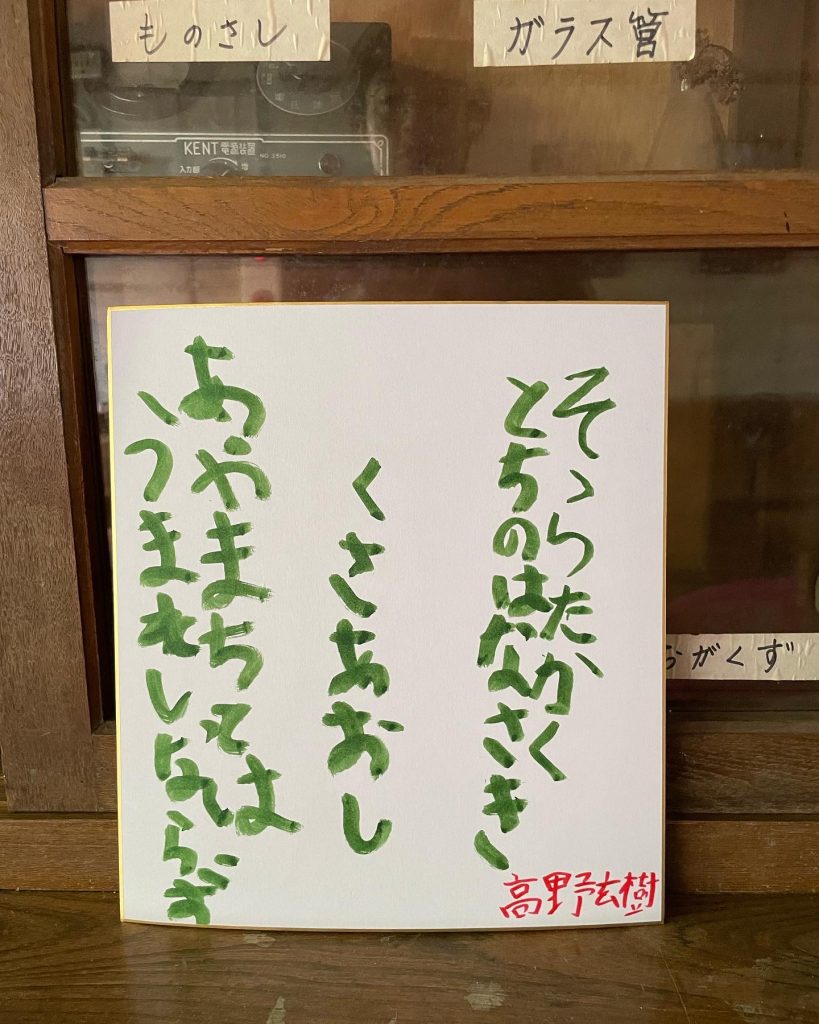 ものさし
ガラス管
KENT 電源装置
NO 3510
入力
そらたかく
とちのはなさき
くさあおし
あやまちては
うまれしならず
高野玄樹
おがくず